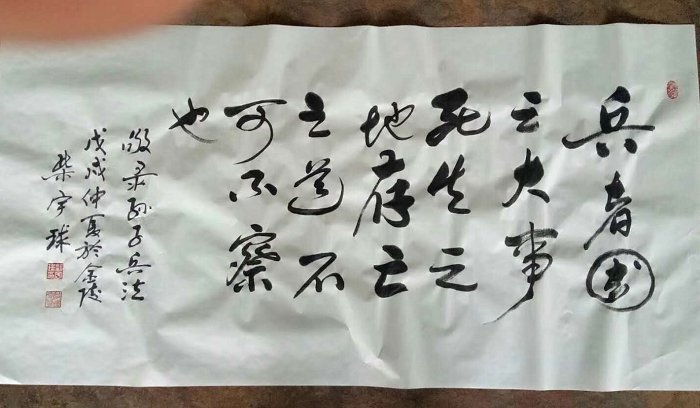 兵者国
之大事
死生之
地存亡
之道不
可不察
也
敬录孙子兵法
戊戌仲夏於金陵
柴宇球